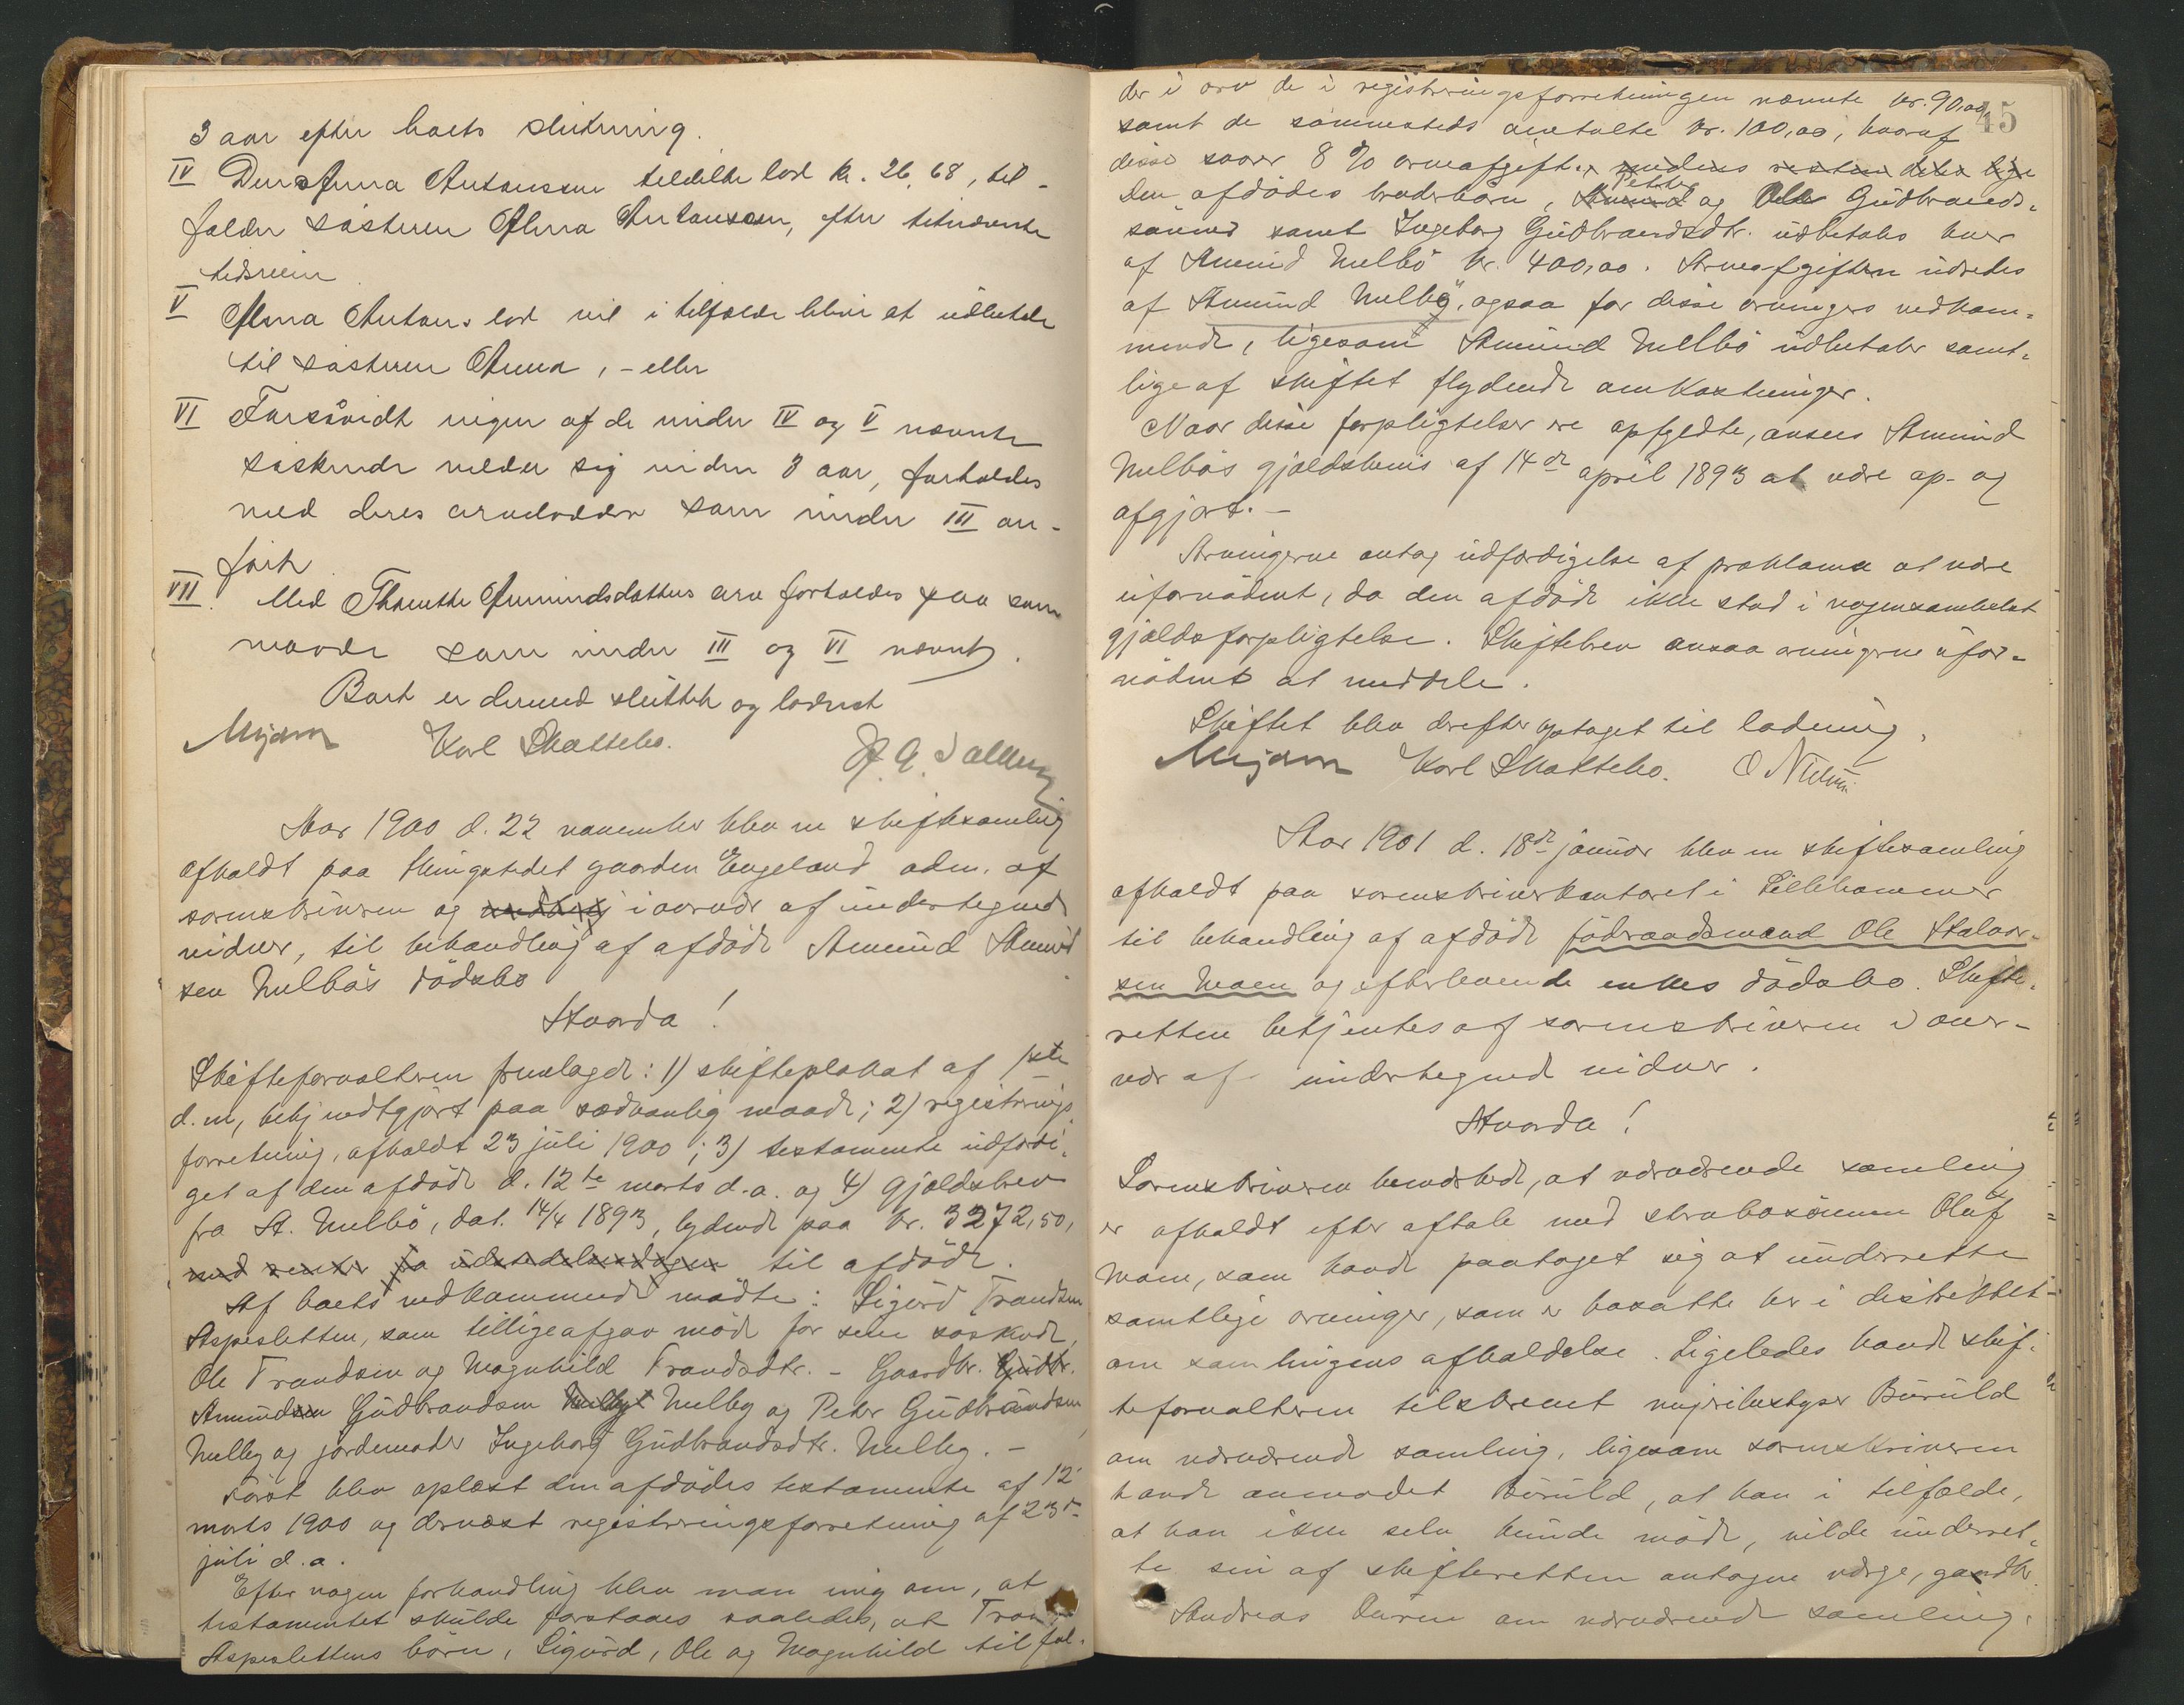 3 aar efter boets slutning.
IV Den Anna Antonsen tildelte lod kr. 26,68, til-
falder søsteren Alma Antonsen, efter titnævnte
tidsrum
V Alma Antons. lod vil i tilfælde blive at udbetale
til søsteren Anna, - eller
VI Forsåvidt ingen af de under IV og V nævnte
søskende melder sig inden 3 aar, forholdes
med deres arvelodder som under III an-
ført
VII. Med Thonette Amundsdatters arv forholdes paa sam
maade som under III og VI nævnt.
Boet er dermed sluttet og loddet
Mejdam Karl Skattebo.
Aar 1900 d. 22 november blev en skiftesamling
afholdt paa thingstedet gaarden Engeland adm. af
sorenskriveren og i overvær af undertegnede
vidner, til behandling af afdøde Amund Amund
sen Melbøs dødsbo
Hvorda!
Skifteforvalteren fremlagde: 1) skifteplakat af 1ste
d.m, bekjendtgjort paa sædvanlig maade; 2) registrerings
forretning, afholdt 23 juli 1900; 3) testamente udfærdi-
get af den afdøde d. 12te marts d.a. og 4) gjældsbrev
fra A. Melbö, dat. 14/4 1893, lydende paa kr. 3272,50,
med renter fra udstedelsesdagen til afdøde.
Af boets vedkommende mødte: Sigurd Trondsen
Aspesletten, som tillige afgav møde for sine søskende,
Ole Trondsen og Magnhild Trondsdtr. - Gaardbr. Gudbr.
Amundsen Gudbrandsen Melby og Peter Gudbrandsen
Melby og jordemoder Ingeborg Gudbrandsdtr. Melby. -
Først blev oplæst den afdødes testamente af 12'
marts 1900 og dernæst registreringsforretning af 23de
juli d.a.
Efter nogen forhandling blev man enig om, at
testamentet skulde forstaaes saaledes, at Trond
Aspeslettens børn, Sigurd, Ole og Magnhild tilfal-
45
der i arv de i registreringsforretningen nævnte kr. 90,00,
samt de sammesteds omtalte kr. 100,00, hvoraf
disse svarer 8 % arveafgift, medens resten deles lige
Den afdødes broderbørn, Amund Petter og Ole Gudbrands-
sønner samt Ingeborg Gudbrandsdtr. udbetales hver
af Amund Melbö kr. 400,00. Arveafgiften udredes
af Amund Melbö, ogsaa for disse arvingers vedkom-
mende, ligesom Amund Melbö udbetaler samt-
lige af skiftet flydende omkostninger.
Naar disse forpligtelser ere opfyldte, ansees Amund
Melbös gjældsbevis af 14de april 1893 at være op- og
afgjort. -
Arvingerne antog udfærdigelse af proklama at være
ufornødent, da den afdøde ikke stod i nogensomhelst
gjældsforpligtelse. Skiftebrev ansaa arvingerne ufor-
nødent at meddele.
Skiftet blev derefter optaget til lodning.
Mejdam Karl Skattebo.
Aar 1901 d. 18de januar blev en skiftesamling
afholdt paa sorenskriverkontoret i Lillehammer
til behandling af afdøde föderaadsmand Ole Halvor-
sen Moen og efterlevende enkes dødsbo. Skifte-
retten betjentes af sorenskriveren i over-
vær af undertegnede vidner.
Hvorda!
Sorenskriveren bemærkede, at nærværende samling
er afholdt efter aftale med sønnen Oluf
Moen, som havde paataget sig at underrette
samtlige arvinger, som er bosatte her i distriktet
om samlingens afholdelse. Ligeledes havde skif-
teforvalteren tilskrevet Büruld
om nærværende samling, ligesom sorenskriveren
havde anmodet Büruld, at han i tilfælde,
at han ikke selv kunde møde, vilde underret-
te sin af skifteretten antagne værge, gaardbr.
Andreas om nærværende samling.